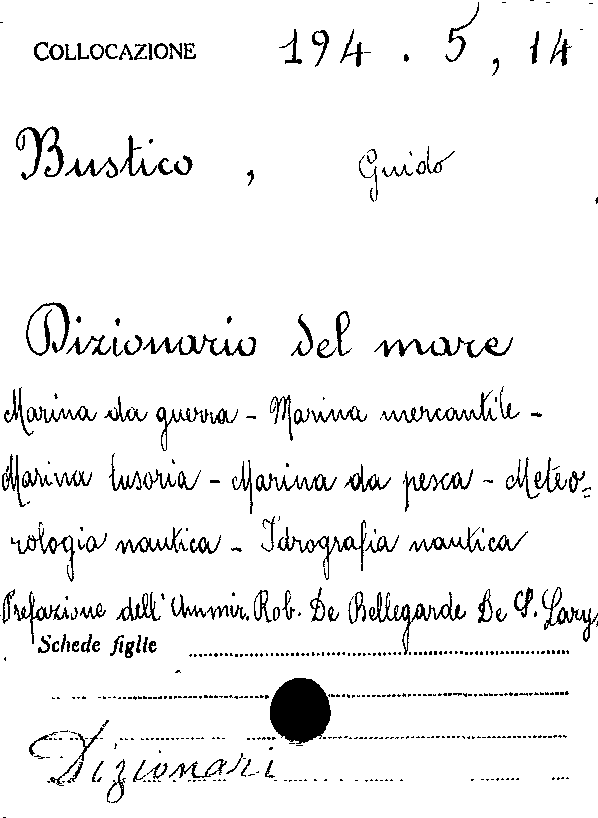 COLLOCAZIONE 194 . 5 , 14
Bustico , Guido
Dizionario del mare
Marina da guerra - Marina mercantile -
Marina lusoria - Marina da pesca - Meteo=
rologia nautica - Idrografia nautica
Prefazione dell' Ammir. Rob. De Bellegarde De S. Lary.
Schede figlie
Dizionari